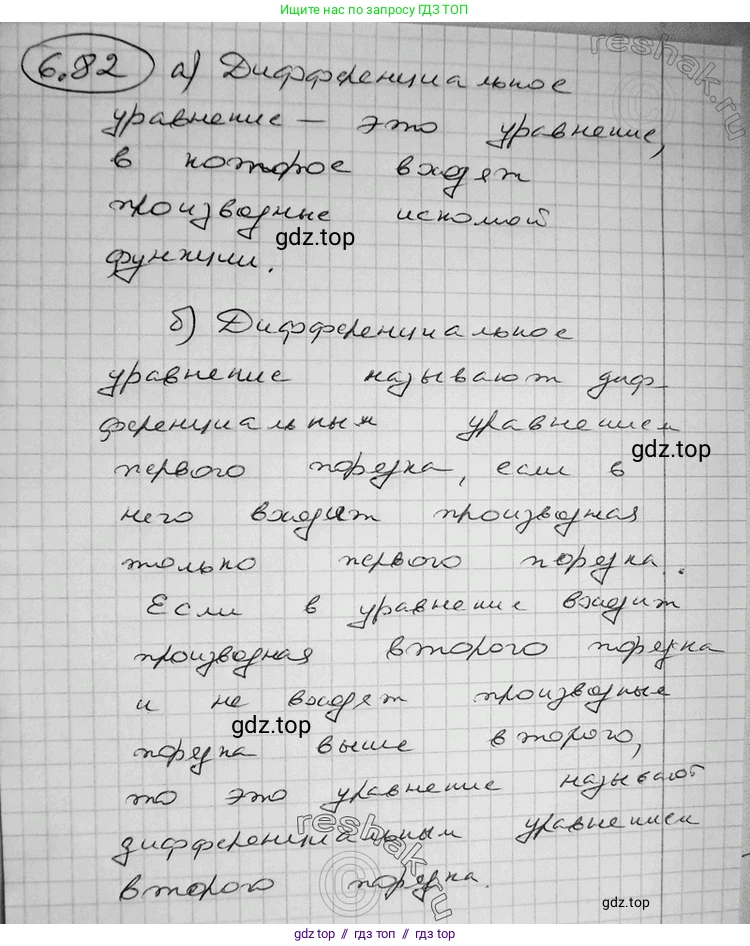 Ищите нас по запросу ГДЗ ТОП
6.82 а) Дифференциальное
уравнение – это уравнение,
в которое входят
производные искомой
функции.
б) Дифференциальное
уравнение называют диф-
ференциальным уравнением
первого порядка, если в
него входит производная
только первого порядка.
Если в уравнение входит
производная второго порядка
и не входят производные
порядка выше второго,
то это уравнение называют
дифференциальным уравнением
второго порядка.
reshak.ru
gdz.top
gdz.top
gdz.top
reshak.ru
gdz.top
gdz.top // гдз топ // гдз.топ